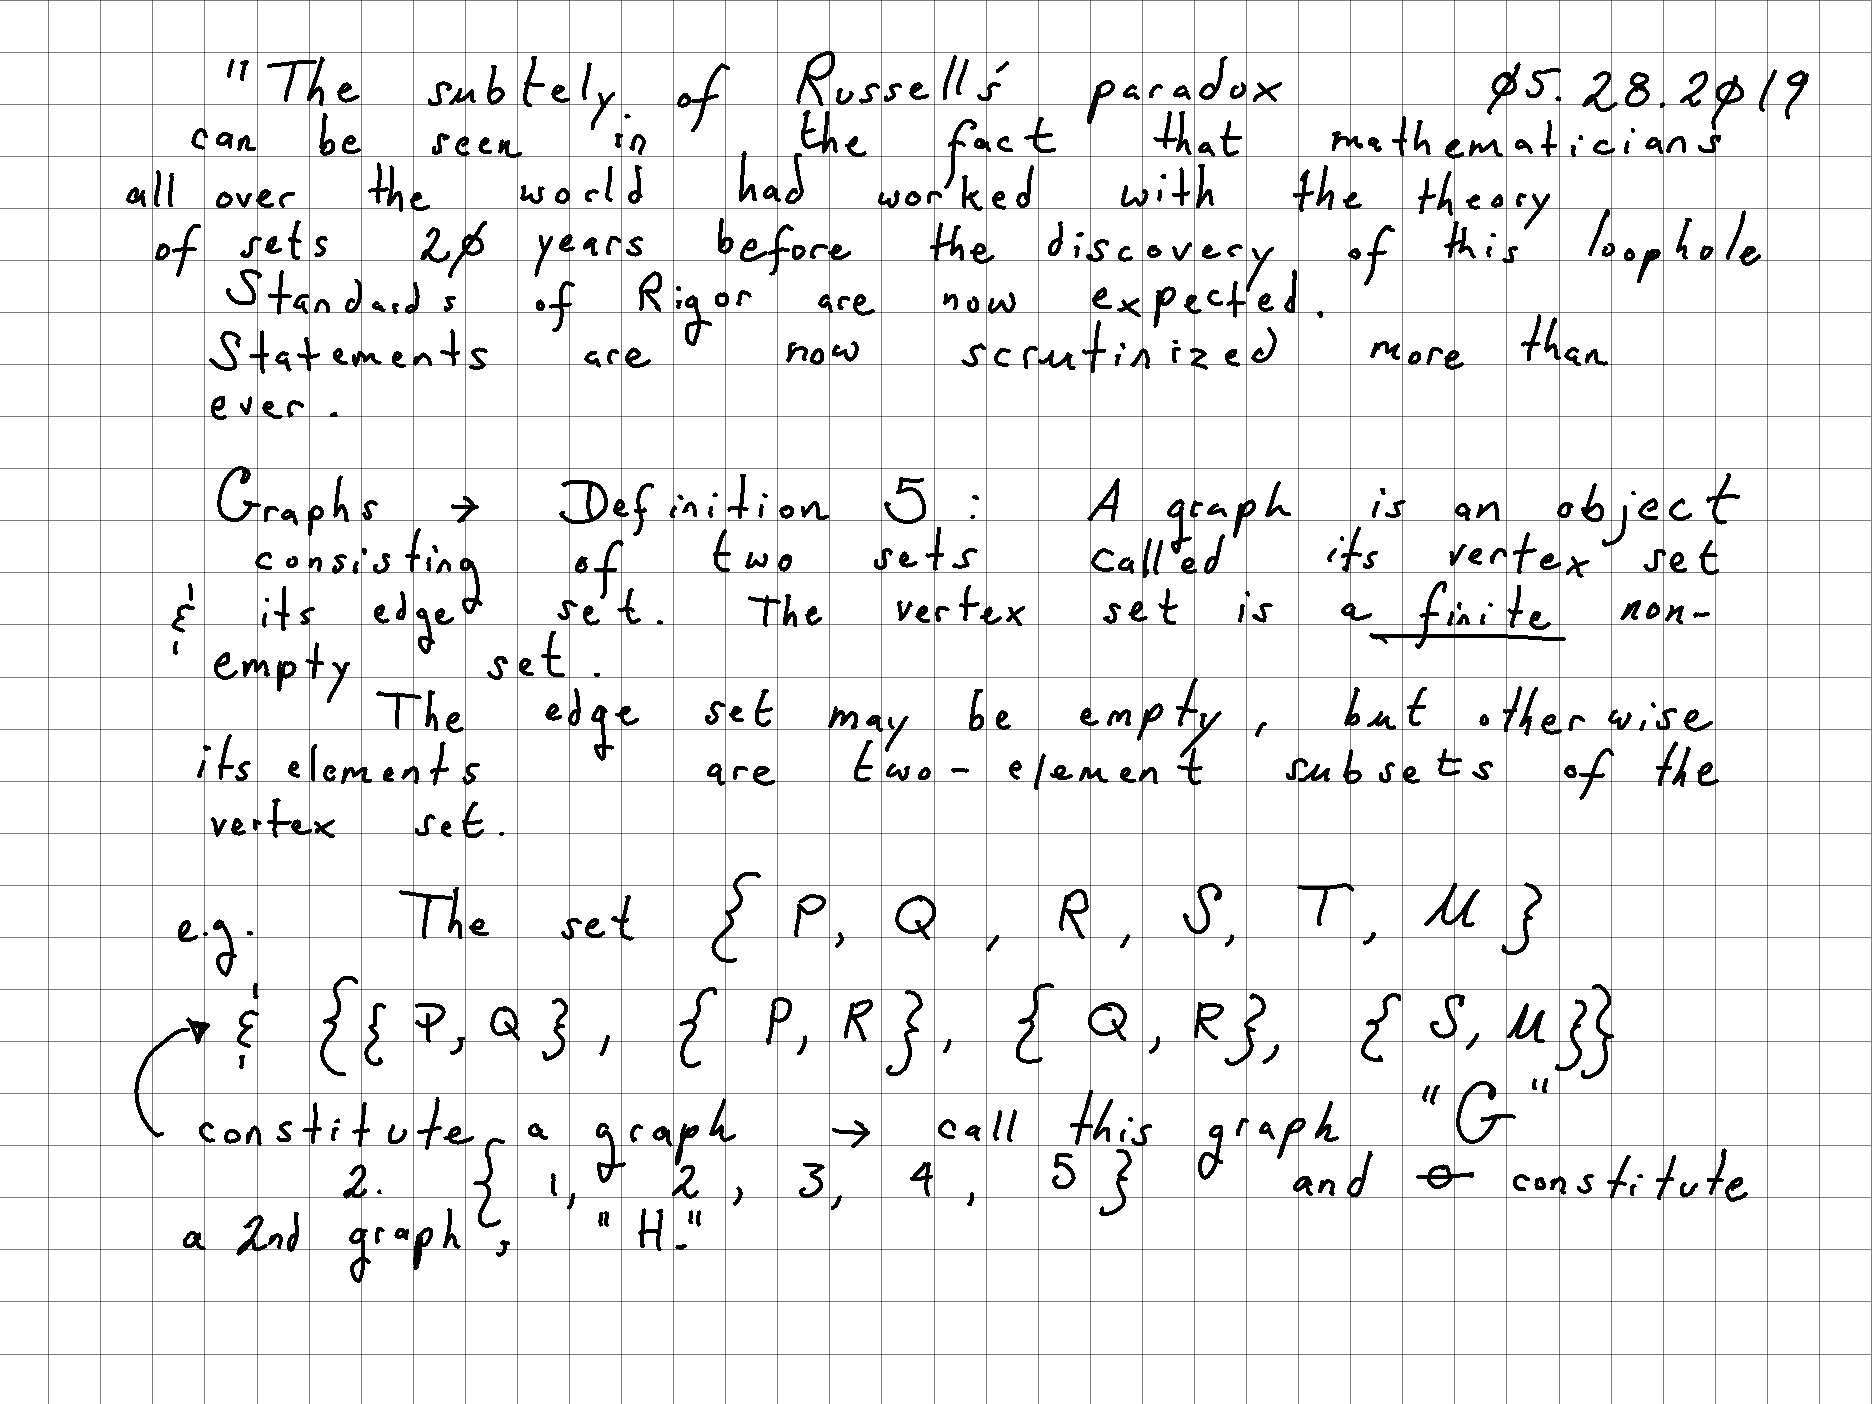 "The subtely of Russell's paradox ø5.28.2ø19
can be seen in the fact that mathematicians
all over the world had worked with the theory
of sets 2ø years before the discovery of this loophole
Standards of Rigor are now expected.
Statements are now scrutinized more than
ever.
Graphs → Definition 5: A graph is an object
consisting of two sets called its vertex set
& its edge set. The vertex set is a finite non-
empty set.
The edge set may be empty, but otherwise
its elements are two-element subsets of the
vertex set.
e.g. The set { P, Q, R, S, T, U }
& {{ P, Q }, { P, R }, { Q, R }, { S, U }}
constitute a graph → call this graph "G"
2. { 1, 2, 3, 4, 5 } and ∅ constitute
a 2nd graph, "H."